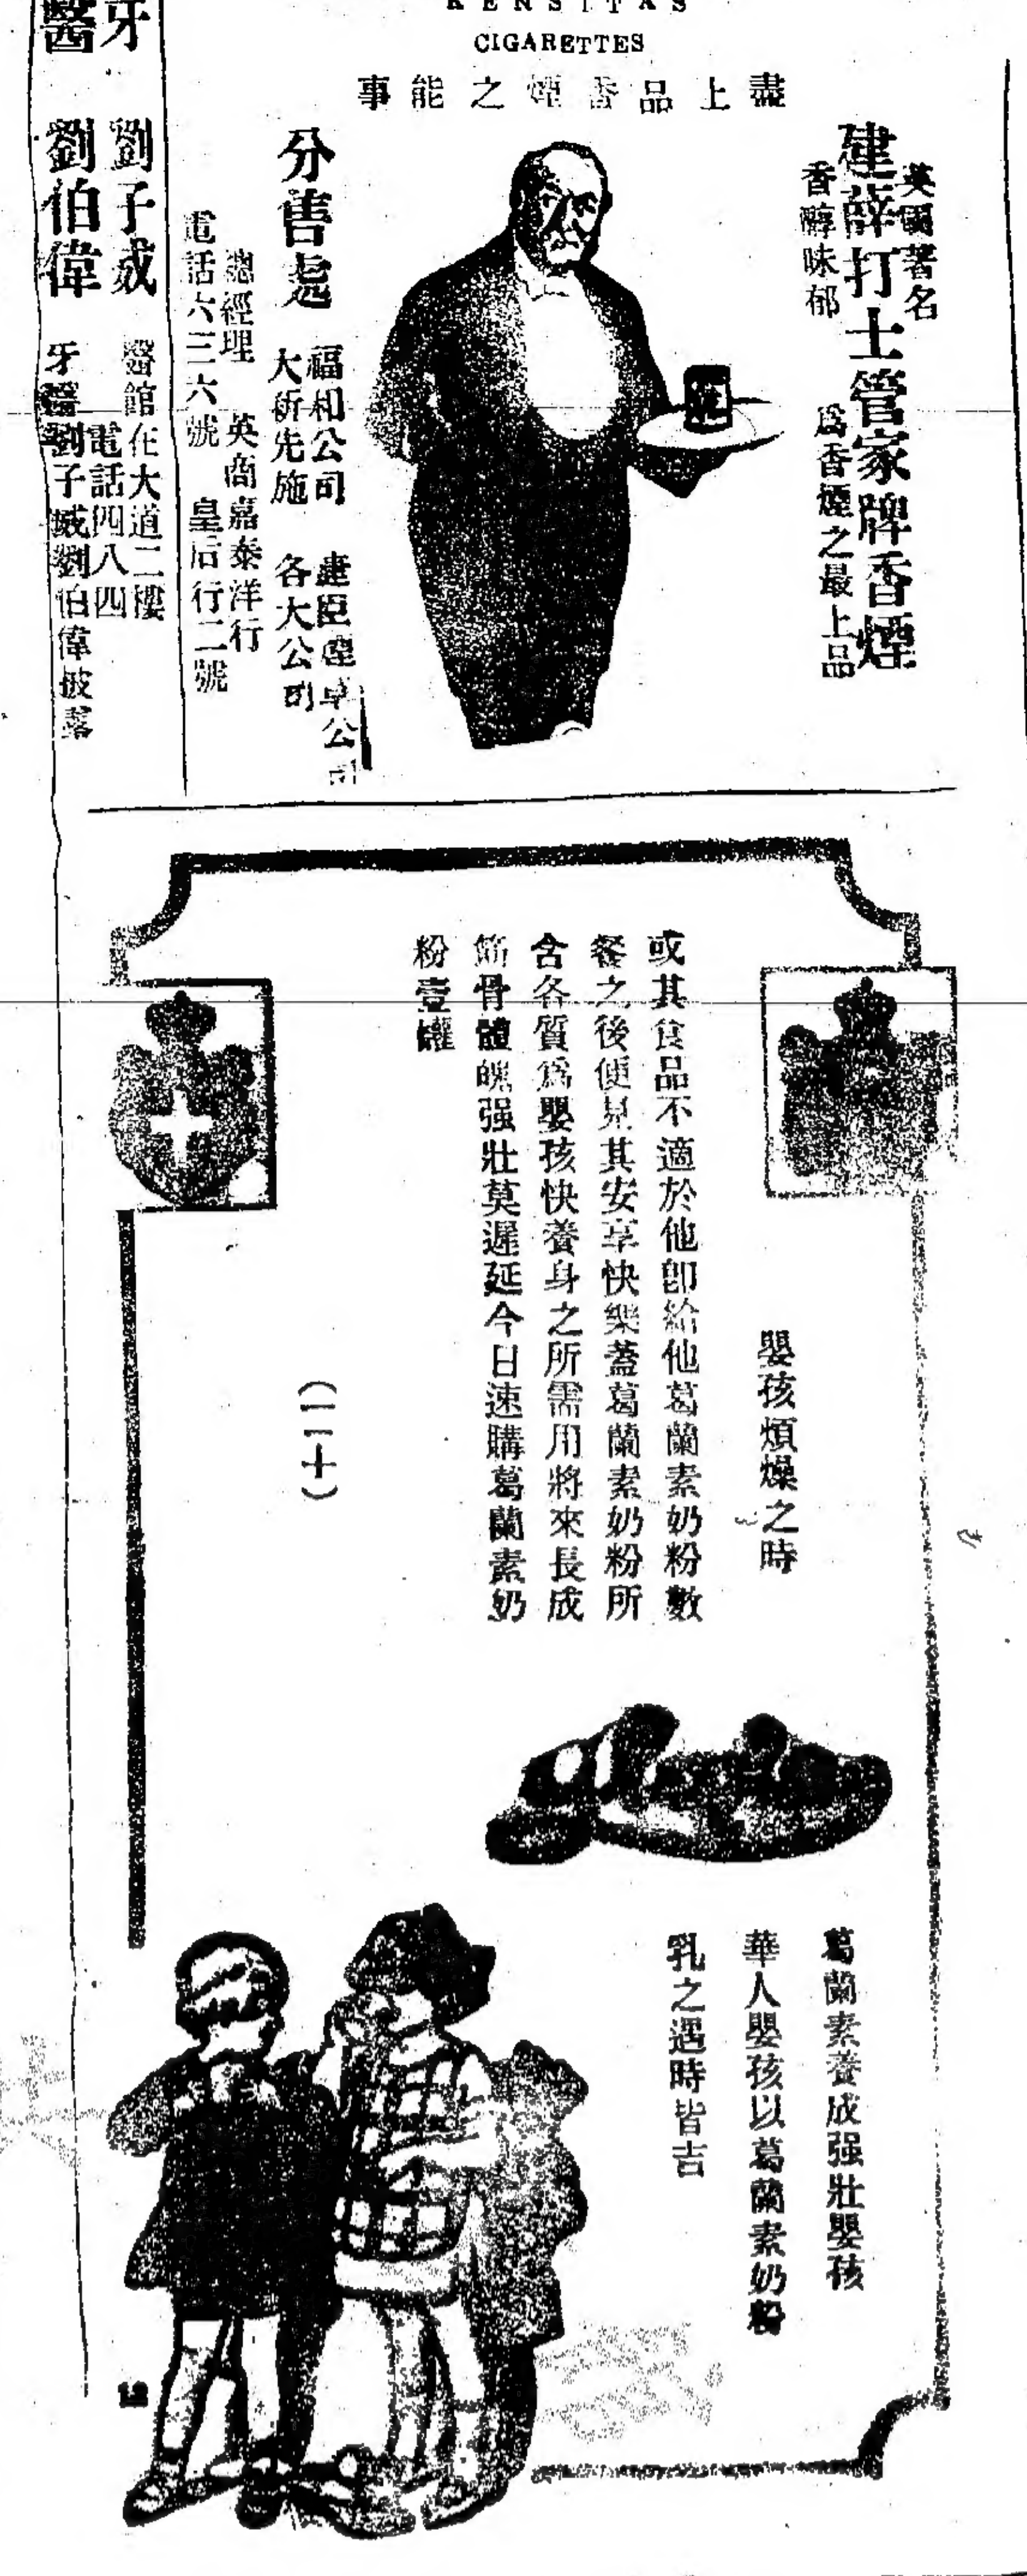 KENSITAS
CIGARETTES
盡上品香煙之能事
英國著名
建薛打士管家牌香煙
香醇味郁
為香煙之最上品
分售處
福和公司
大新先施
各大公司
總經理 英商嘉泰洋行
電話六三六號 皇后行二號
牙醫
劉子威
劉伯偉
醫館在大道二樓
電話四八四
牙醫劉子威劉伯偉披露
嬰孩煩燥之時
或其食品不適於他卽給他葛蘭素奶粉數
餐之後便見其安享快樂蓋葛蘭素奶粉所
含各質為嬰孩快養身之所需用將來長成
筋骨體魄强壯莫遲延今日速購葛蘭素奶
粉壹罐
(二十)
葛蘭素養成强壯嬰孩
華人嬰孩以葛蘭素奶粉
乳之遇時皆吉